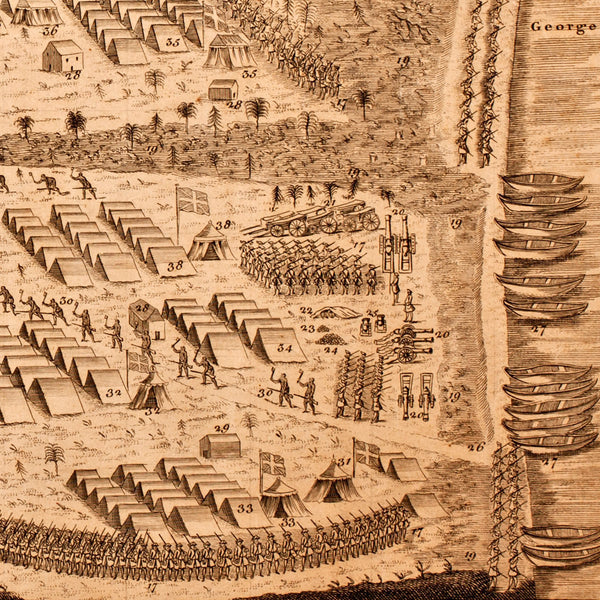 36
George
35
35
28
28
17
19
19
38
21
20
17
38
28
30
22
23
24
25
20
34
27
32
32
30
19
26
29
31
27
33
33
17
19